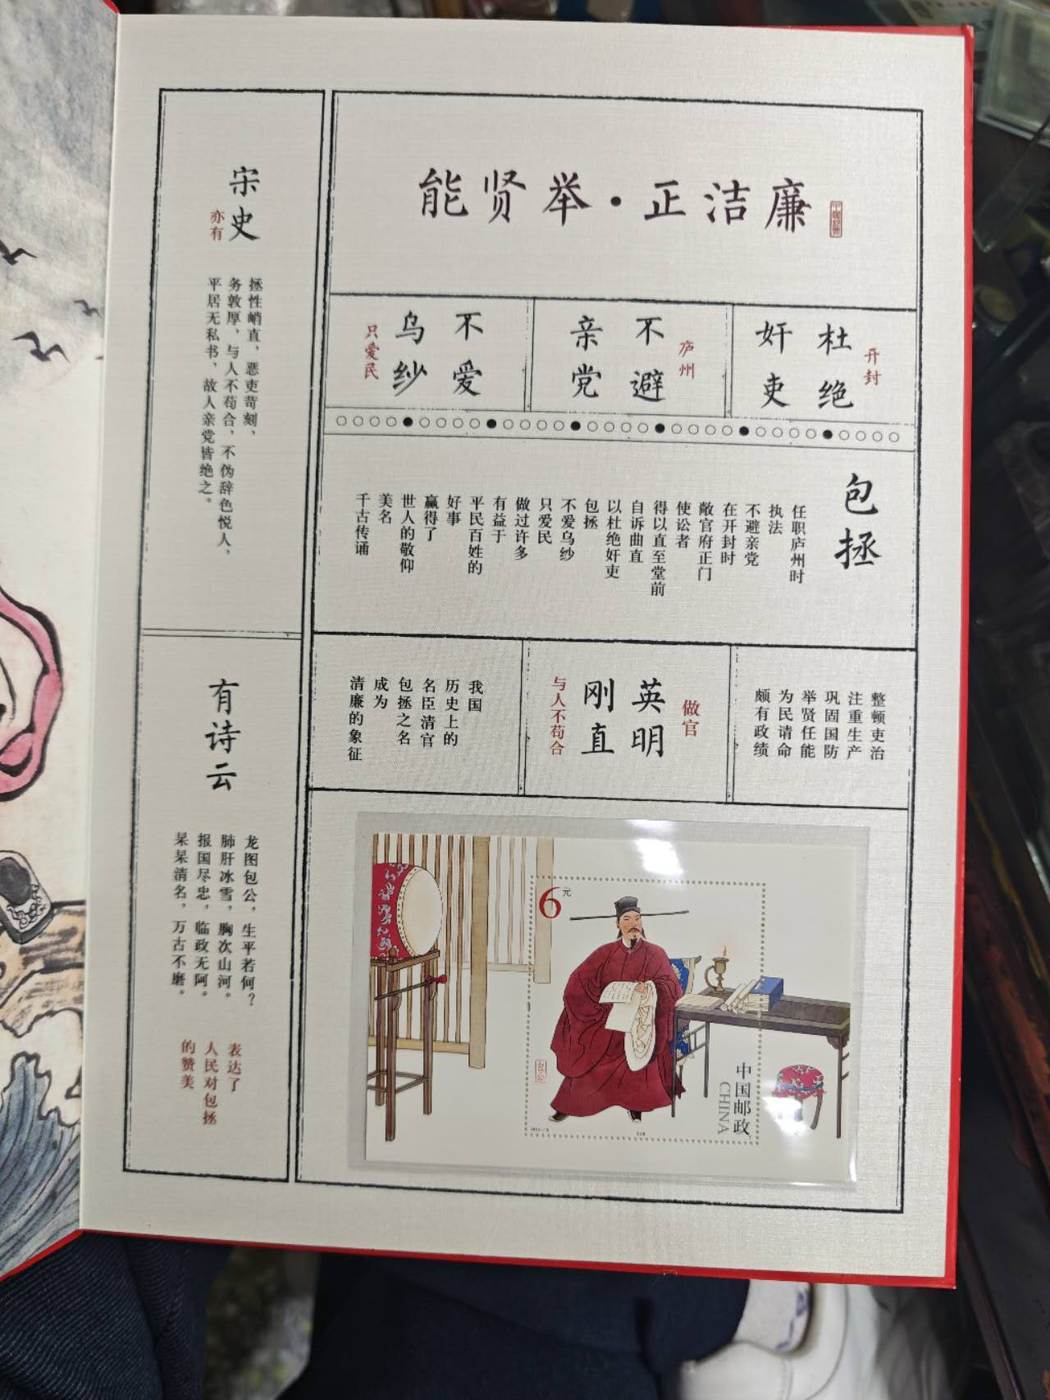 廉洁正·举贤能
开封
杜绝
奸吏
庐州
不避
亲党
不爱
乌纱
只爱民
包拯
任职庐州时
执法
不避亲党
在开封时
敞官府正门
使讼者
得以直至堂前
自诉曲直
以杜绝奸吏
包拯
不爱乌纱
只爱民
做过许多
有益于
平民百姓的
好事
赢得了
世人的敬仰
美名
千古传诵
整顿吏治
注重生产
巩固国防
举贤任能
为民请命
颇有政绩
做官
英明
刚直
与人不苟合
我国
历史上的
名臣清官
包拯之名
成为
清廉的象征
6元
中国邮政
CHINA
宋史
亦有
拯性峭直，恶吏苛刻，
务敦厚，与人不苟合，不伪辞色悦人，
平居无私书，故人亲党皆绝之。
有诗云
龙图包公，生平若何？
肺肝冰雪，胸次山河。
报国尽忠，临政无阿。
杲杲清名，万古不磨。
表达了
人民对包拯
的赞美